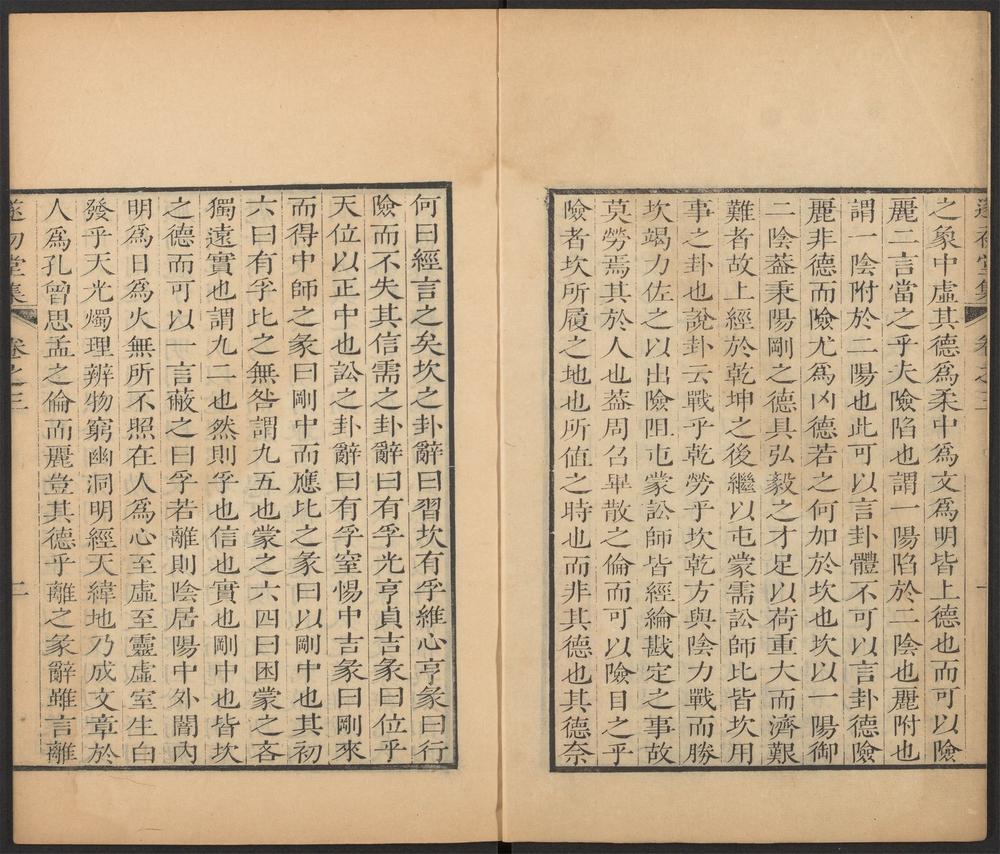 遂初堂集 卷之三 一
之象中虛其德為柔中為文為明皆上德也而可以險
麗二言當之乎夫險陷也謂一陽陷於二陰也麗附也
謂一陰附於二陽也此可以言卦體不可以言卦德險
麗非德而險尤為凶德若之何加於坎也坎以一陽御
二陰葢秉陽剛之德具弘毅之才足以荷重大而濟艱
難者故上經於乾坤之後繼以屯蒙需訟師比皆坎用
事之卦也說卦云戰乎乾勞乎坎乾方與陰力戰而勝
坎竭力佐之以出險阻屯蒙訟師皆經綸戡定之事故
莫勞焉其於人也葢周召畢散之倫而可以險目之乎
險者坎所履之地也所值之時也而非其德也其德奈
何曰經言之矣坎之卦辭曰習坎有孚維心亨彖曰行
險而不失其信需之卦辭曰有孚光亨貞吉彖曰位乎
天位以正中也訟之卦辭曰有孚窒惕中吉彖曰剛來
而得中師之彖曰剛中而應比之彖曰以剛中也其初
六曰有孚比之無咎謂九五也蒙之六四曰困蒙之吝
獨遠實也謂九二也然則孚也信也實也剛中也皆坎
之德而可以一言蔽之曰孚若離則陰居陽中外闇內
明為日為火無所不照在人為心至虛至靈虛室生白
發乎天光燭理辨物窮幽洞明經天緯地乃成文章於
人為孔曾思孟之倫而麗豈其德乎離之彖辭雖言離
遂初堂集 卷之三 二